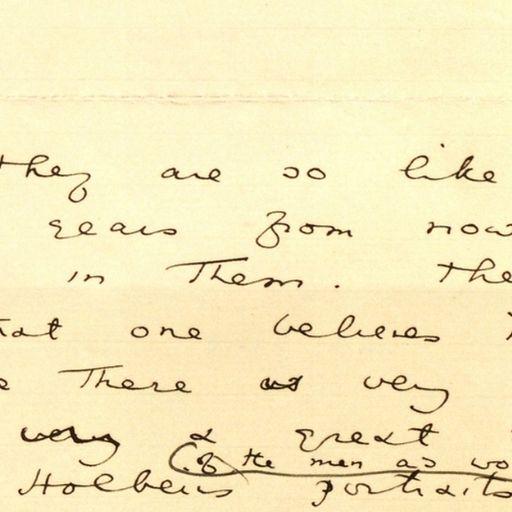 they are so like
years from now
in them. the
that one believes
there as very
very & great
(of the men as wo
Holbeins portraits